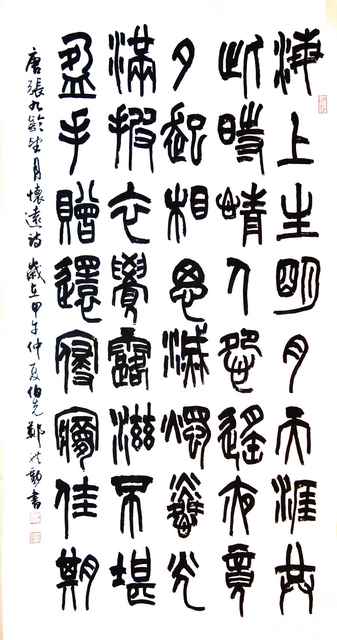 海上生明月天涯共
此時情人怨遙夜竟
夕起相思滅燭憐光
滿披衣覺露滋不堪
盈手贈還寢夢佳期
唐張九齡望月懷遠詩 歲在甲午仲夏伯先鄭勳書